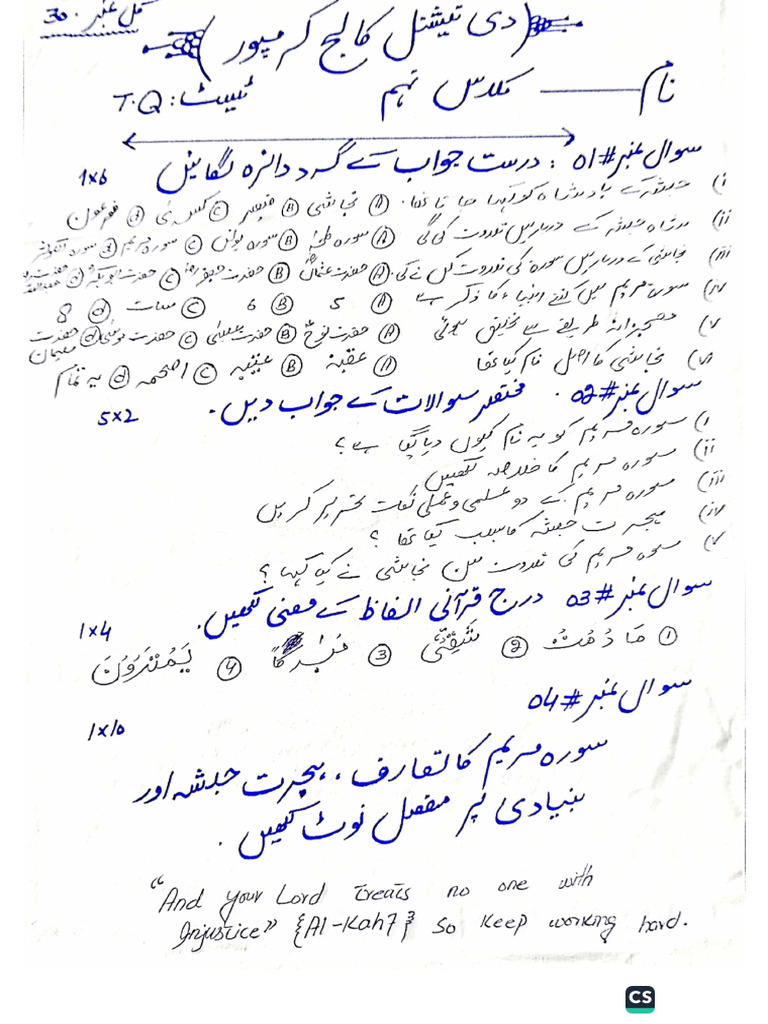 کل نمبر: 30
(دی نیشنل کالج کرمپور)
نام ——— کلاس نہم ٹیسٹ: T.Q
سوال نمبر#01: درست جواب کے گرد دائرہ لگائیں 1x6
i) حبشہ کے بادشاہ کو کہا جاتا تھا۔ A نجاشی B قیصر C کسریٰ d فرعون
ii) شاہ حبشہ کے دربار میں تلاوت کی گی A سورہ طہٰ B سورہ یونس C سورہ مریم d سورہ الکوثر
iii) نجاشی کے دربار میں سورہ کی تلاوت کس نے کی A حضرت عثمانؓ B حضرت جعفرؓ C حضرت ابوبکرؓ d حضرت
iv) سورۃ مریم میں کتنے انبیاء کا ذکر ہے A 5 B 6 C سات d 8
v) معجزانہ طریقے سے تخلیق ہوئی A حضرت نوحؑ B حضرت عیسیٰؑ C حضرت موسیٰؑ d حضرت سلیمان
vi) نجاشی کا اصل نام کیا تھا A عقبہ B عتبہ C اصحمہ d یہ تمام
سوال نمبر#02۔ مختصر سوالات کے جواب دیں۔ 5x2
i) سورہ مریم کو یہ نام کیوں دیا گیا ہے؟
ii) سورہ مریم کا خلاصہ لکھیں
iii) سورہ مریم کے دو علمی و عملی نکات تحریر کریں
iv) ہجرت حبشہ کا سبب کیا تھا؟
v) سورہ مریم کی تلاوت سن نجاشی نے کیا کہا؟
سوال نمبر#03 درج قرآنی الفاظ کے معنی لکھیں۔ 1x4
1 مَا دُمْتُ 2 شَقِيًّا 3 مُبٰرَكًا 4 يَمْتَرُوْنَ
سوال نمبر#04 1x10
سورہ مریم کا تعارف، ہجرت حبشہ اور
بنیادی پر مفصل نوٹ لکھیں۔
"And your Lord treats no one with
Injustice" {Al-Kahf} So keep working hard.
CS